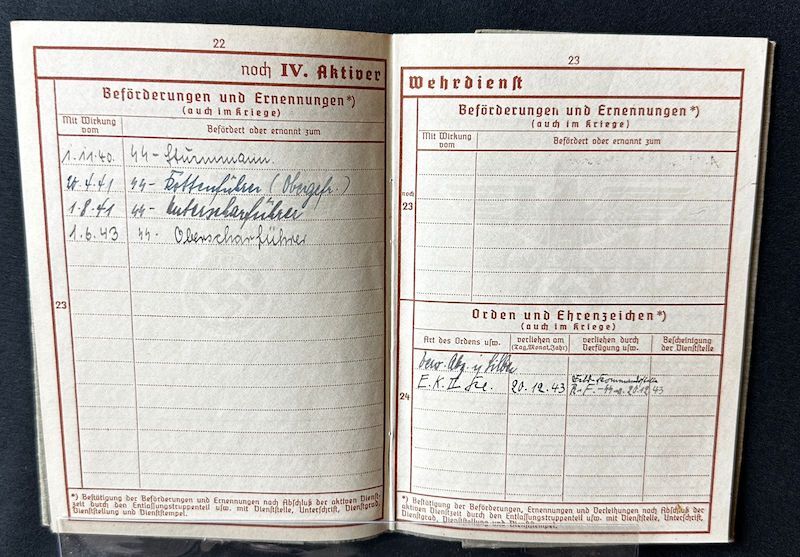 22
noch IV. Aktiver
Beförderungen und Ernennungen*)
(auch im Kriege)
Mit Wirkung vom
Befördert oder ernannt zum
1.11.40. ᛋᛋ-Sturmmann.
20.4.41 ᛋᛋ-Rottenführer (Obergefr.)
1.8.41 ᛋᛋ-Unterscharführer
1.6.43 ᛋᛋ- Oberscharführer
23
*) Bestätigung der Beförderungen und Ernennungen nach Abschluß der aktiven Dienst-
zeit durch den Entlassungstruppenteil usw. mit Dienststelle, Unterschrift, Dienstgrad,
Dienststellung und Dienststempel.
23
Wehrdienst
Beförderungen und Ernennungen*)
(auch im Kriege)
Mit Wirkung vom
Befördert oder ernannt zum
noch
23
Orden und Ehrenzeichen*)
(auch im Kriege)
Art des Ordens usw.
verliehen am (Tag, Monat, Jahr)
verliehen durch Verfügung usw.
Bescheinigung der Dienststelle
Verw. Abz. i. Silber
E.K.II 20.12.43 20.12.43
24
*) Bestätigung der Beförderungen, Ernennungen und Verleihungen nach Abschluß der
aktiven Dienstzeit durch den Entlassungstruppenteil usw. mit Dienststelle, Unterschrift,
Dienstgrad, Dienststellung und Dienststempel.